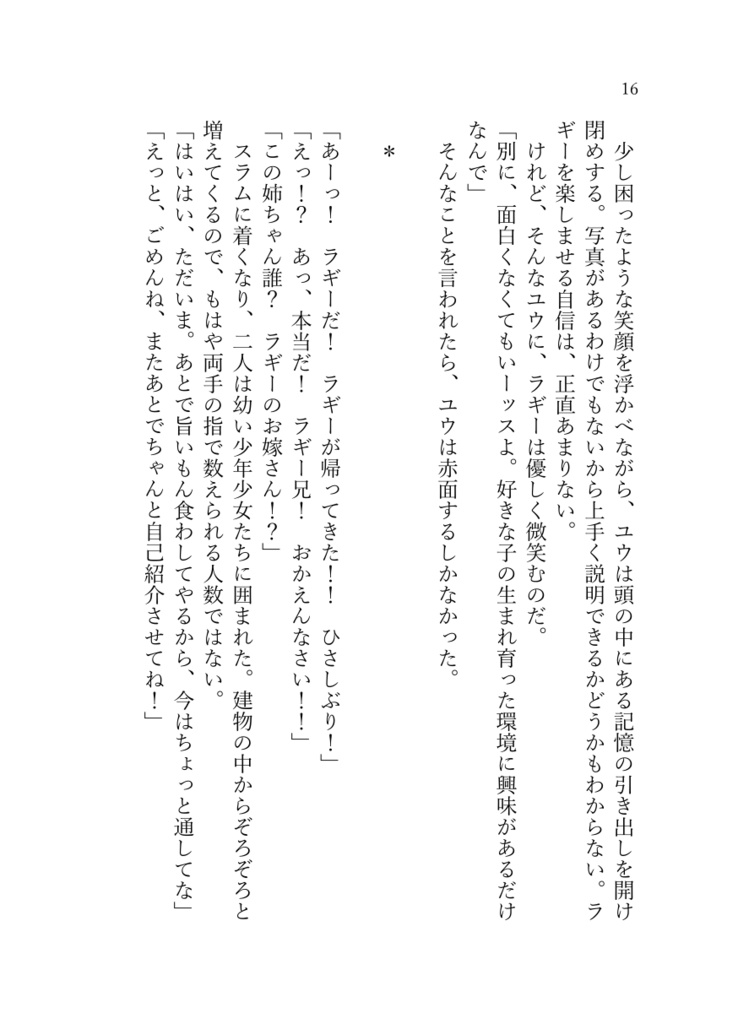 16
　少し困ったような笑顔を浮かべながら、ユウは頭の中にある記憶の引き出しを開け
閉めする。写真があるわけでもないから上手く説明できるかどうかもわからない。ラ
ギーを楽しませる自信は、正直あまりない。
　けれど、そんなユウに、ラギーは優しく微笑むのだ。
「別に、面白くなくてもいーッスよ。好きな子の生まれ育った環境に興味があるだけ
なんで」
　そんなことを言われたら、ユウは赤面するしかなかった。
＊
「あーっ！　ラギーだ！　ラギーが帰ってきた！！　ひさしぶり！」
「えっ！？　あっ、本当だ！　ラギー兄！　おかえんなさい！！」
「この姉ちゃん誰？　ラギーのお嫁さん！？」
　スラムに着くなり、二人は幼い少年少女たちに囲まれた。建物の中からぞろぞろと
増えてくるので、もはや両手の指で数えられる人数ではない。
「はいはい、ただいま。あとで旨いもん食わしてやるから、今はちょっと通してな」
「えっと、ごめんね、またあとでちゃんと自己紹介させてね！」